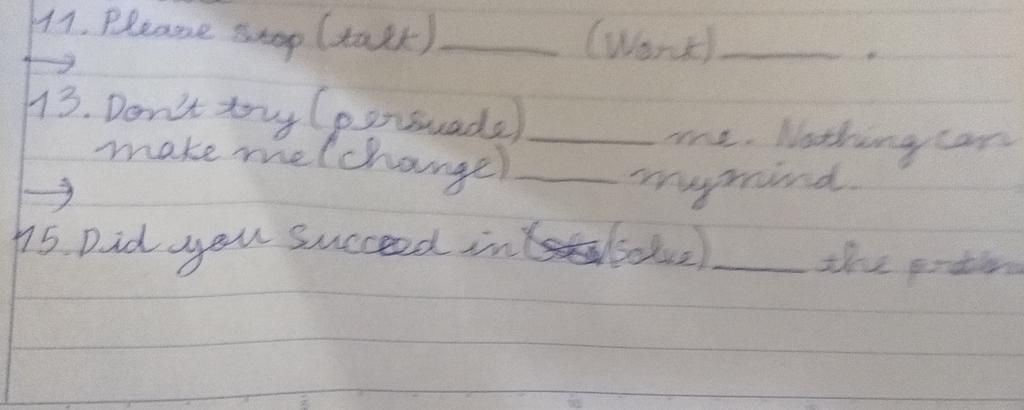 11. Please stop (talk)______ (Work)______ .
→
13. Don't try (persuade)______ me. Nothing can
make me (change)____ my mind.
→
15. Did you succeed in (solve)____ the